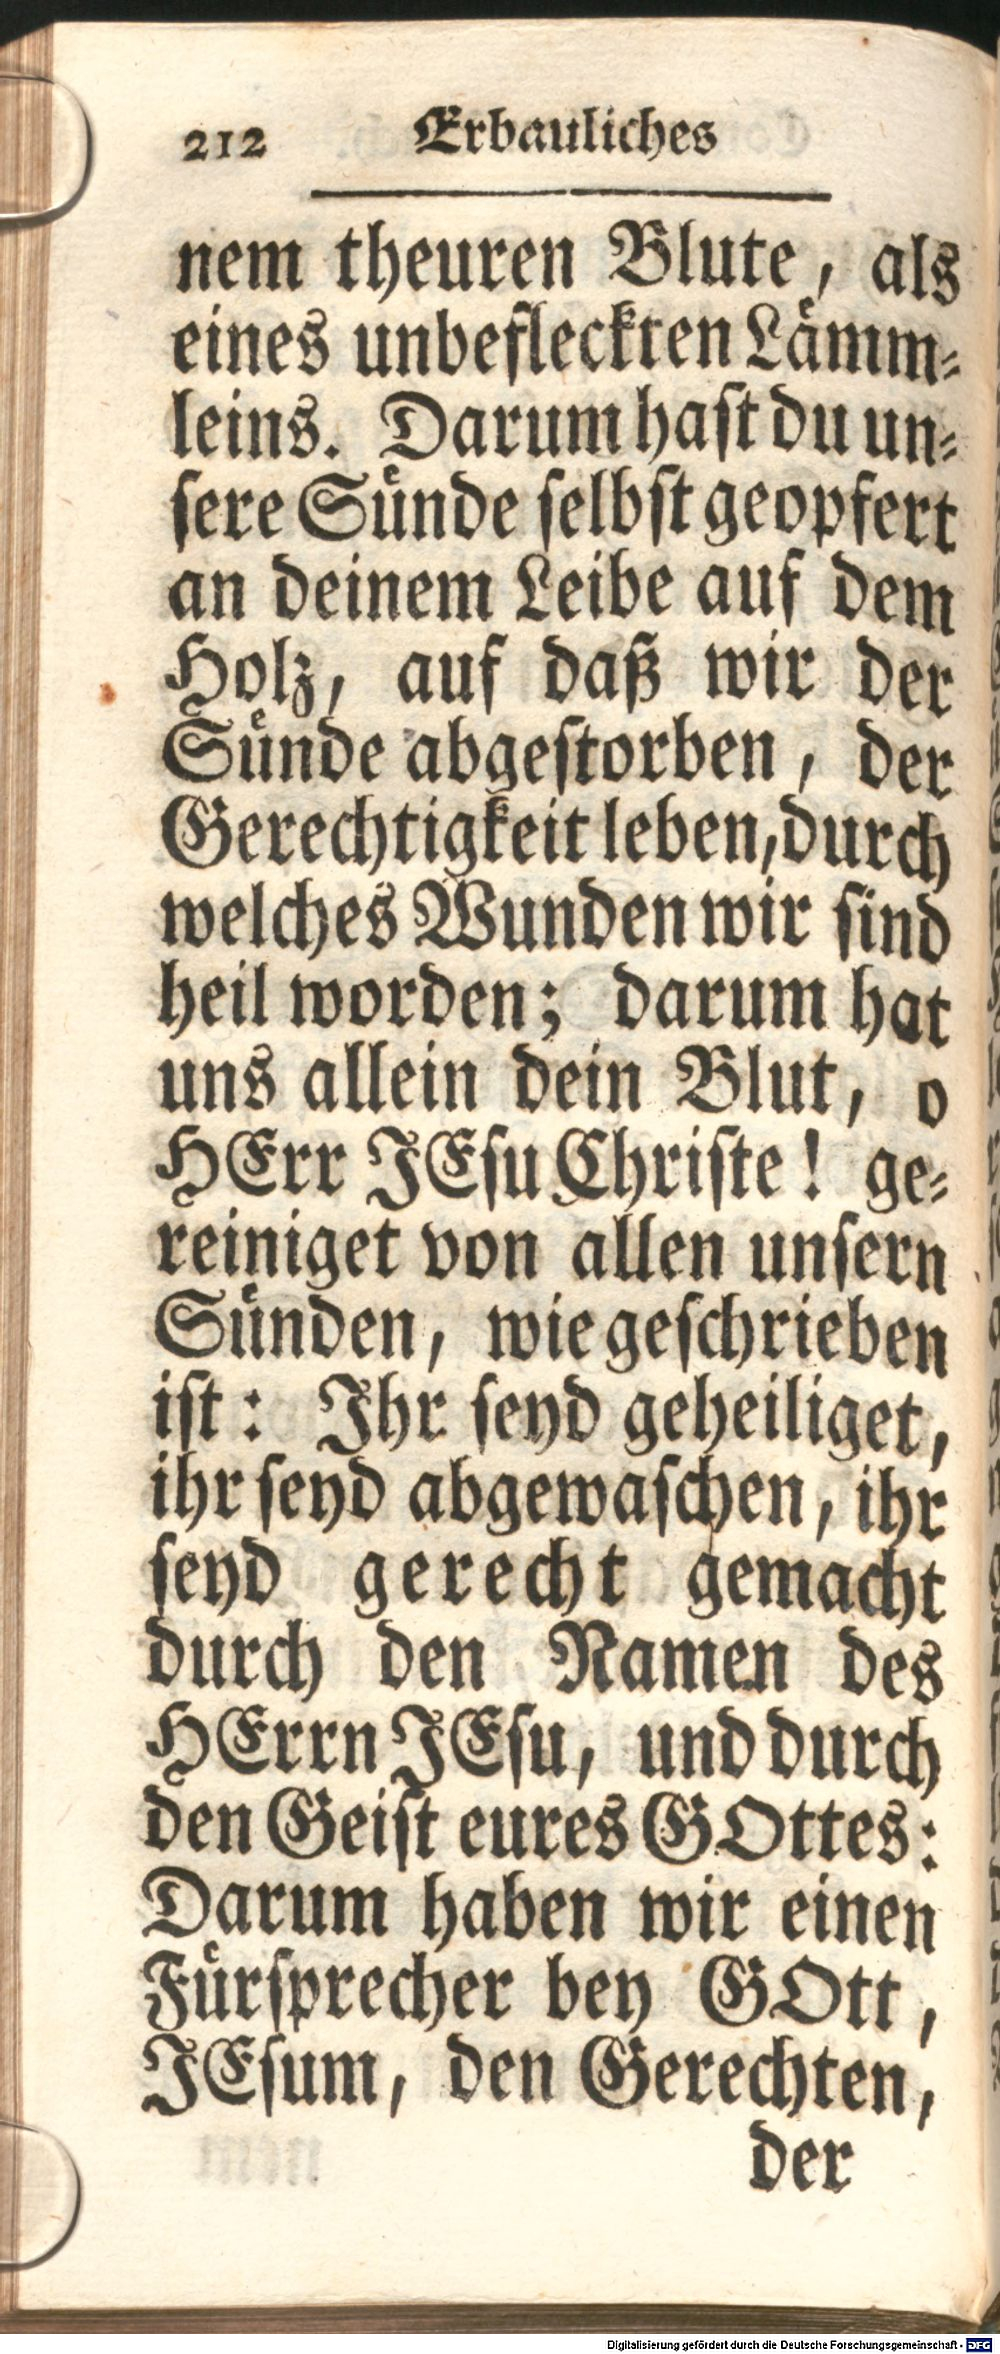 212 Erbauliches
nem theuren Blute, als
eines unbefleckten Lämm-
leins. Darum hast du un-
sere Sünde selbst geopfert
an deinem Leibe auf dem
Holz, auf daß wir der
Sünde abgestorben, der
Gerechtigkeit leben, durch
welches Wunden wir sind
heil worden; darum hat
uns allein dein Blut, o
HErr JEsu Christe! ge-
reiniget von allen unsern
Sünden, wie geschrieben
ist: Ihr seyd geheiliget,
ihr seyd abgewaschen, ihr
seyd gerecht gemacht
durch den Namen des
HErrn JEsu, und durch
den Geist eures GOttes:
Darum haben wir einen
Fürsprecher bey GOtt,
JEsum, den Gerechten,
der
Digitalisierung gefördert durch die Deutsche Forschungsgemeinschaft - DFG